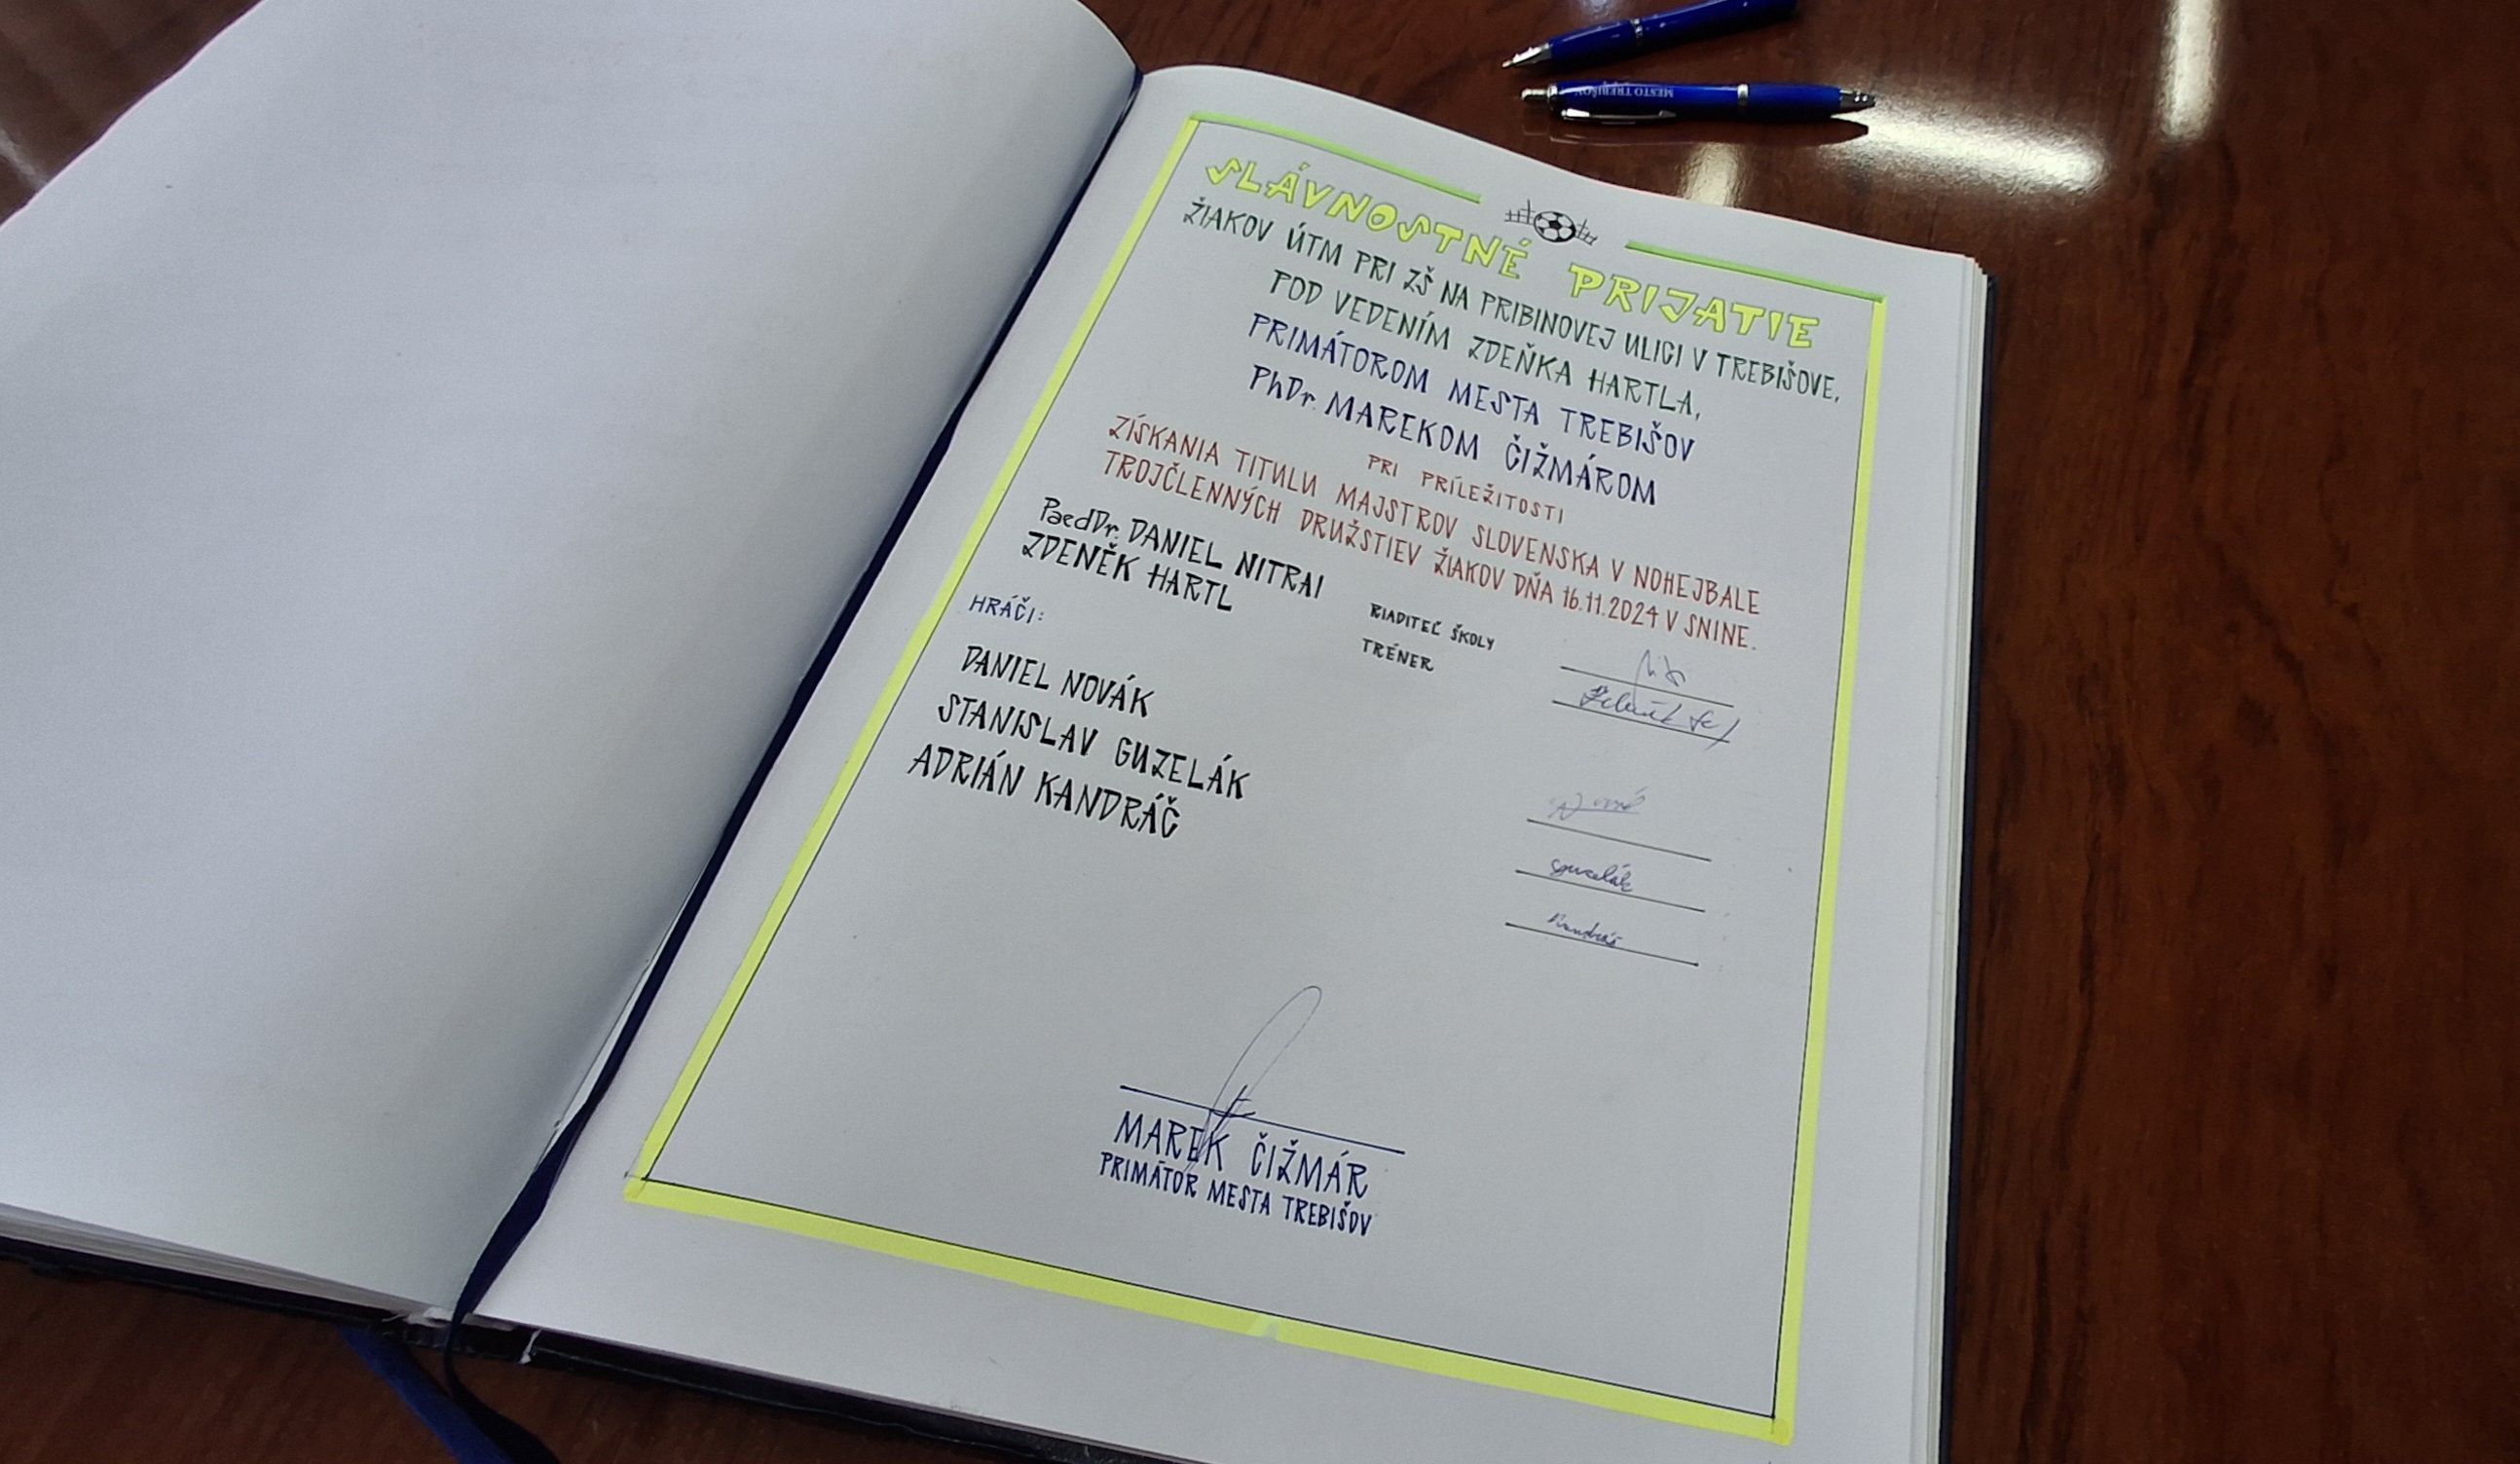 MESTO TREBIŠOV
SLÁVNOSTNÉ PRIJATIE
ŽIAKOV ÚTM PRI ZŠ NA PRIBINOVEJ ULICI V TREBIŠOVE,
POD VEDENÍM ZDEŇKA HARTLA,
PRIMÁTOROM MESTA TREBIŠOV
PhDr. MAREKOM ČIŽMÁROM
PRI PRÍLEŽITOSTI
ZÍSKANIA TITULU MAJSTROV SLOVENSKA V NOHEJBALE
TROJČLENNÝCH DRUŽSTIEV ŽIAKOV DŇA 16.11.2024 V SNINE.
PaedDr. DANIEL NITRAI RIADITEĽ ŠKOLY
ZDENĚK HARTL TRÉNER
HRÁČI:
DANIEL NOVÁK
STANISLAV GUZELÁK Guzelák
ADRIÁN KANDRÁČ Kandráč
MAREK ČIŽMÁR
PRIMÁTOR MESTA TREBIŠOV